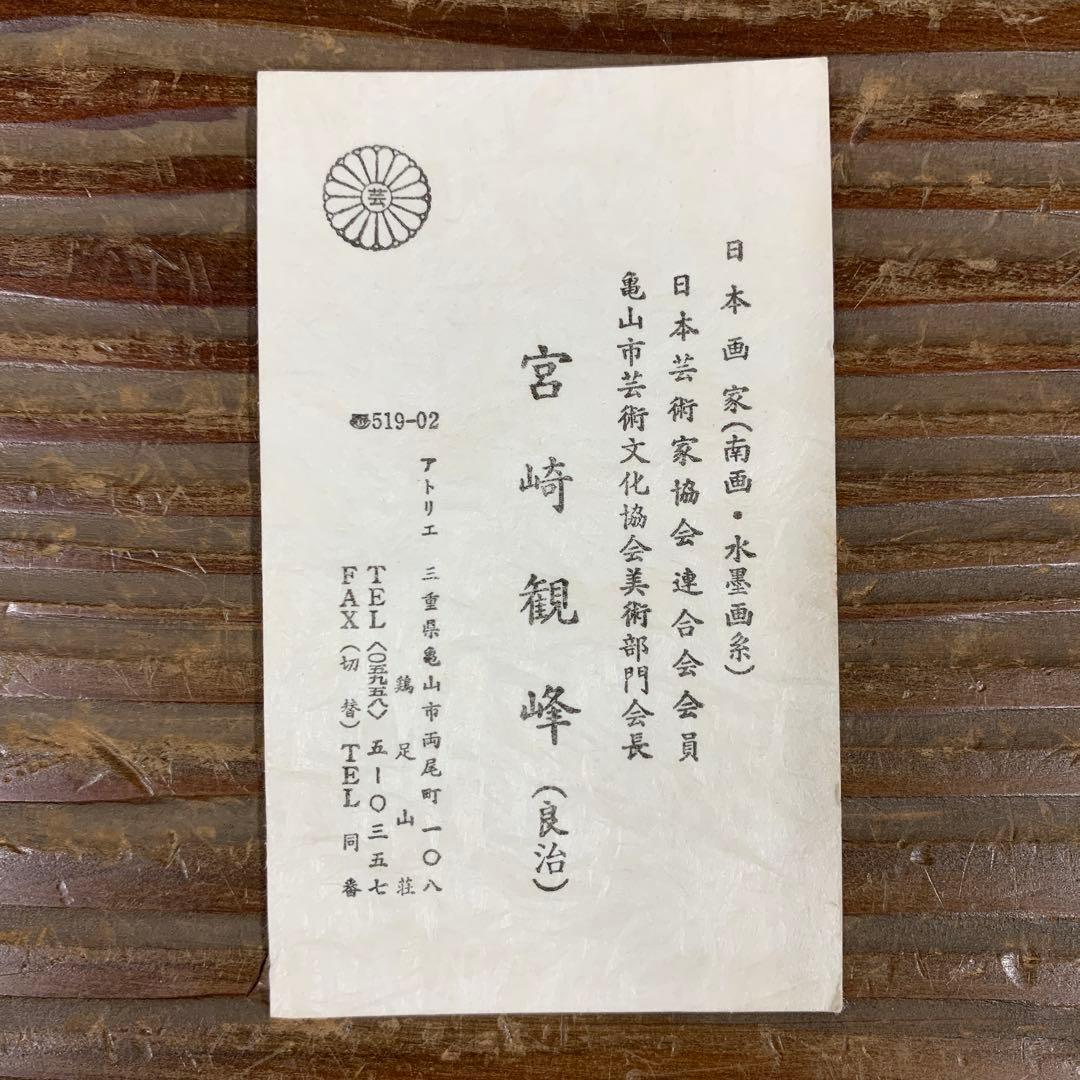 日本画家(南画・水墨画系)
日本芸術家協会連合会会員
亀山市芸術文化協会美術部門会長
宮崎観峰(良治)
芸
〠519-02
アトリエ 三重県亀山市両尾町一〇八
鶏足山荘
TEL〈〇五九五八〉五ー〇三五七
FAX(切替)TEL同番